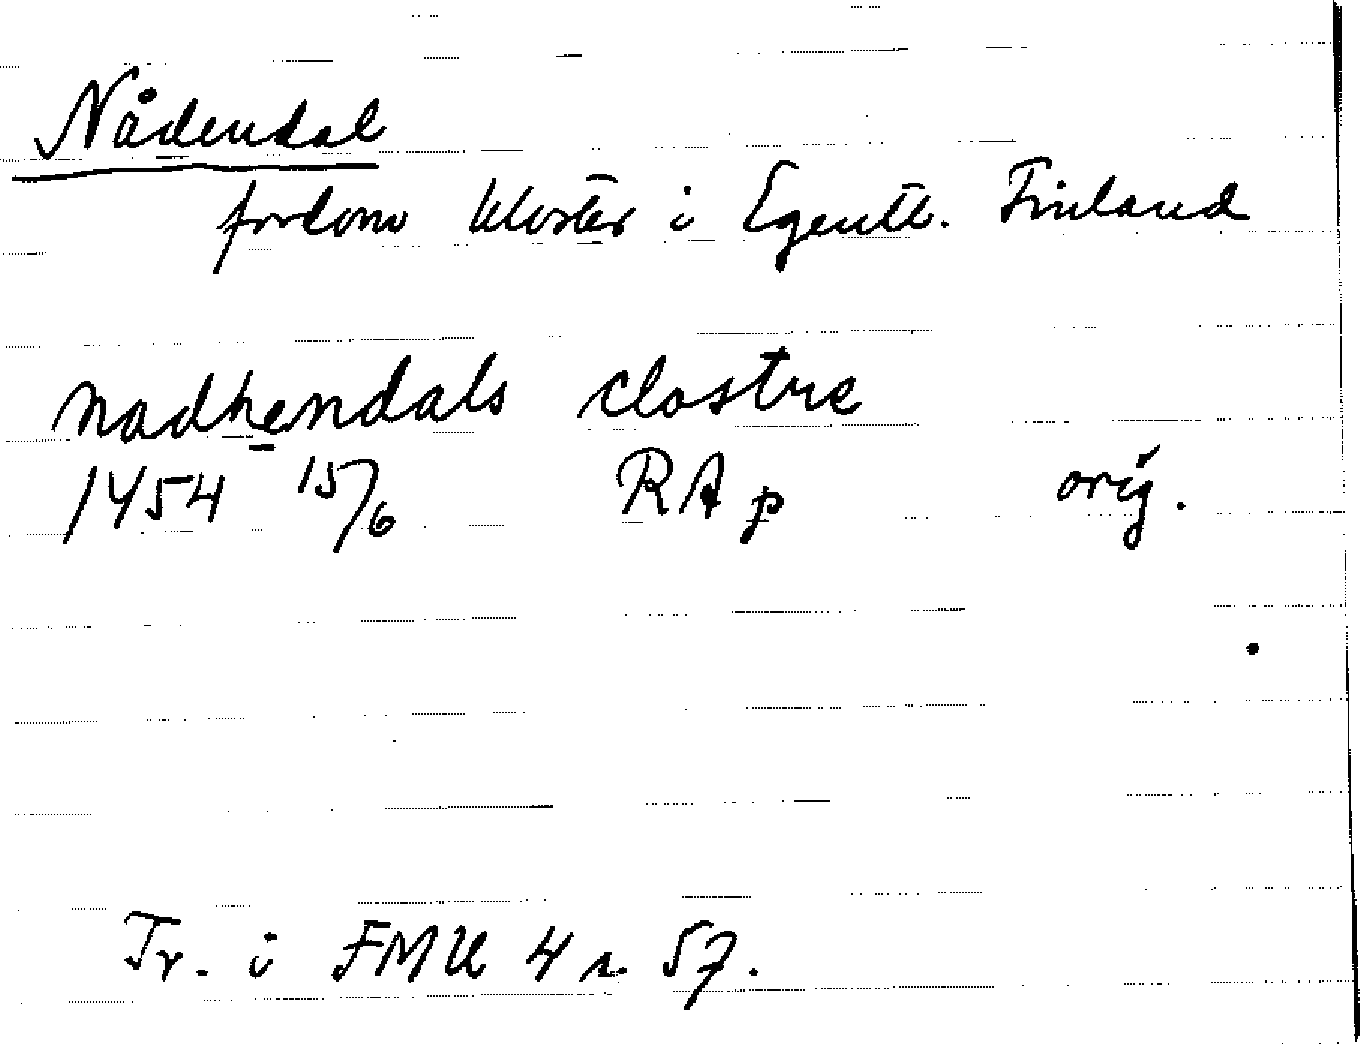 Nådendal
fordom kloster i Egentl. Finland
nadhendals clostre
1454 15/6 RA p orig.
Tr. i FMU 4 s. 57.